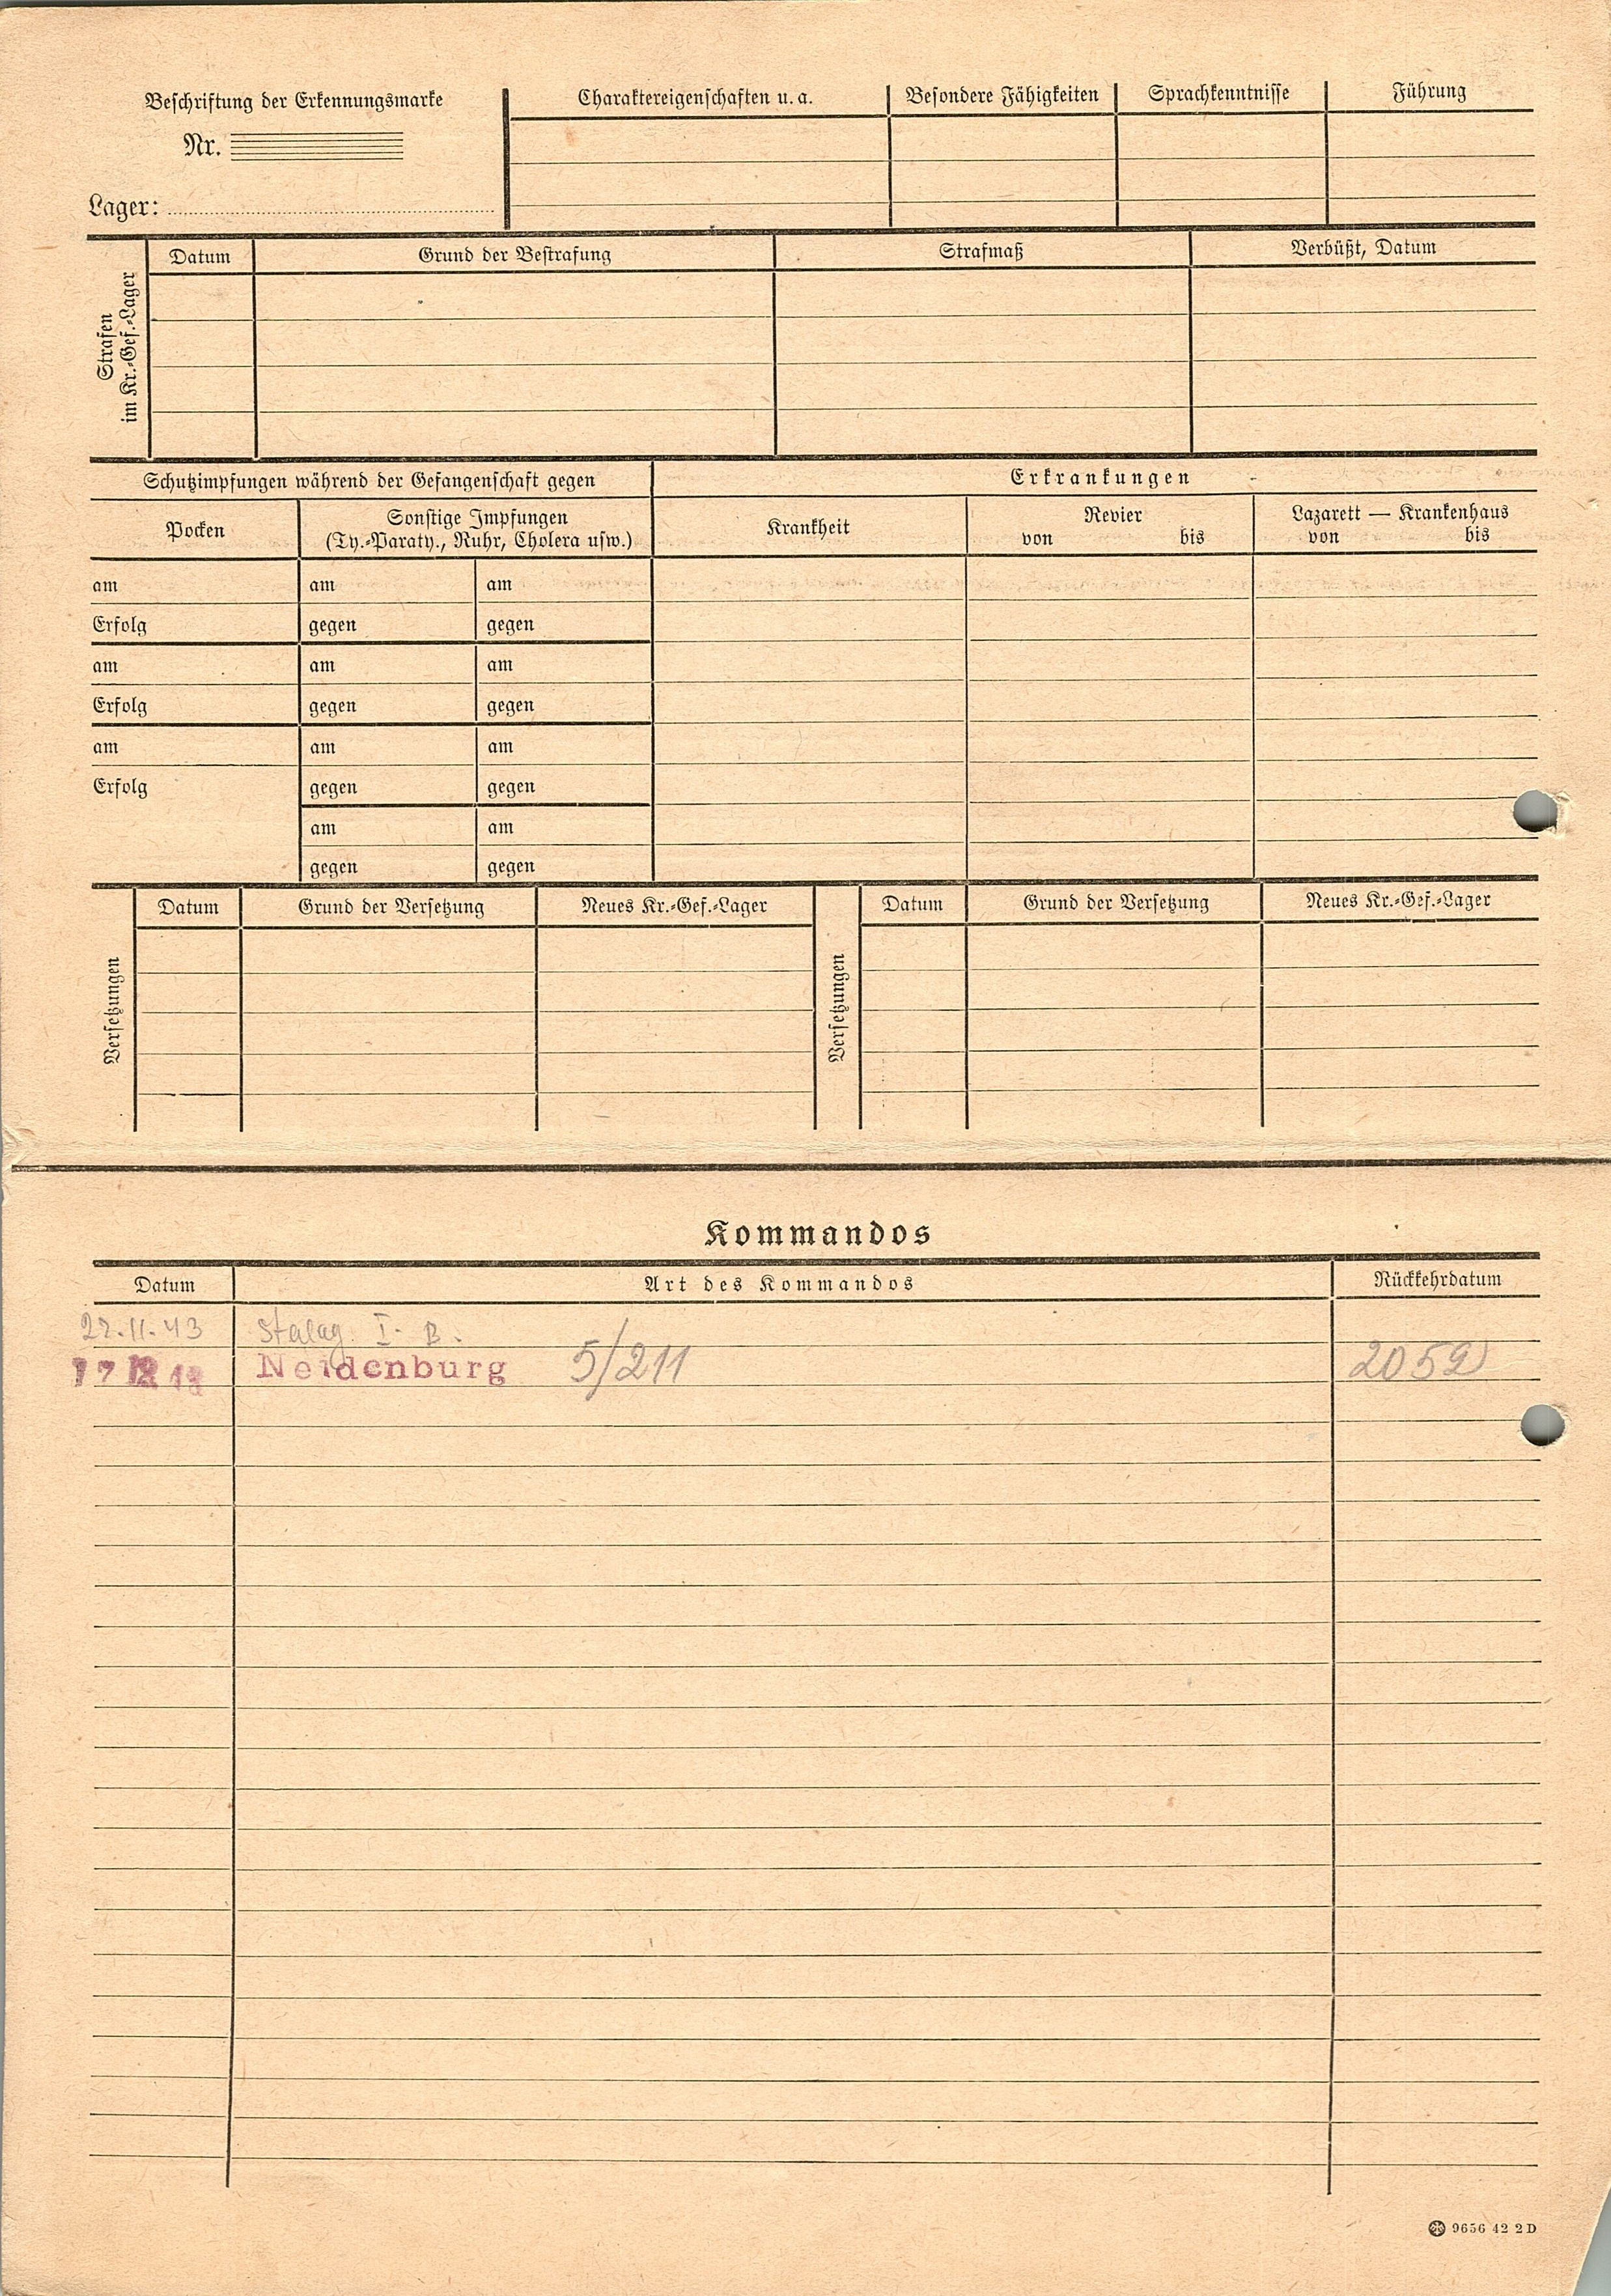 Beschriftung der Erkennungsmarke
Nr.
Lager:
Charaktereigenschaften u. a.
Besondere Fähigkeiten
Sprachkenntnisse
Führung
Strafen
im Kr.-Gef.-Lager
Datum
Grund der Bestrafung
Strafmaß
Verbüßt, Datum
Schutzimpfungen während der Gefangenschaft gegen
Erkrankungen
Pocken
Sonstige Impfungen
(Ty.-Paraty., Ruhr, Cholera usw.)
Krankheit
Revier
von bis
Lazarett — Krankenhaus
von bis
am am am
Erfolg gegen gegen
am am am
Erfolg gegen gegen
am am am
Erfolg gegen gegen
am am
gegen gegen
Versetzungen
Datum Grund der Versetzung Neues Kr.-Gef.-Lager
Versetzungen
Datum Grund der Versetzung Neues Kr.-Gef.-Lager
Kommandos
Datum Art des Kommandos Rückkehrdatum
22.11.43 Stalag. I. B.
17 12 43 Neidenburg 5/211 2052
9656 42 2 D